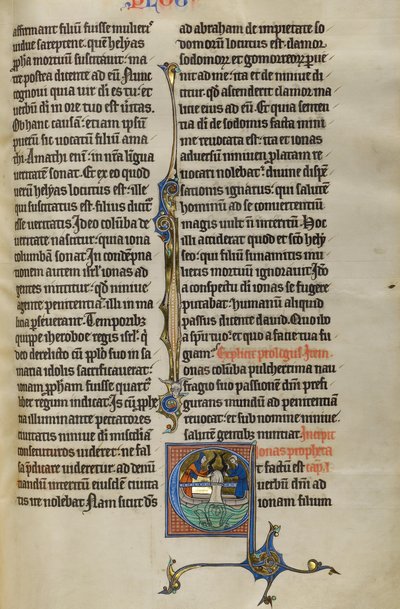 PLOG
affirmant filiū fuisse mulieris
vidue sareptene. quē helyas
ppha mortuū suscitavit. ma
tre postea dicente ad eū. Nunc
cognovi quia vir dī es tu. et
verbū dī in ore tuo est vitas.
Ob hanc causā. etiam ipsū
puerū sic vocatū filiū ama
thi. Amathi enī. in nrā lingua
veritatē sonat. Et ex eo quod
verū helyas locutus est. ille
qui suscitatus est filius dicit̄
esse veritatis. Ideo colūba de
veritate nascitur. quia iona
columbā sonat. In condēpna
tionem autem isrl. ionas ad
gentes mittitur. qd ninive
agente penitentiā. illi in ma
licia pseverant. Temporibȝ
quippe iheroboe regis isrl. q
deo derelicto cū pplo suo in sa
maria idolis sacrificaverat.
ionam ppham fuisse quartꝰ
liber regum indicat. Is cū pphe
tia illuminante peccatores
civitatis ninive dī misedia
consecuturos videret. ne fal
sa pdicare videretur. ad denū
tiandū interitū eiusdē civita
tis ire nolebat. Nam sicut dūs
ad abraham de impietate so
domorū locutus est. clamor
sodomoȝ et gomoreoȝ pue
nit ad me. ita et de ninive di
citur. qd ascenderit clamor ma
licie eius ad eū. Et quia senten
tia dī de sodomis facta mini
me revocata est. ita et ionas
adversū niniven platam re
vocari nolebat. divine dispen
sationis ignarus. qui salutē
hominū ad se convertentiū
magis vult q̄ interitū. Hoc
illi acciderat quod et scō hely
seo. qui filiū sunamitis mu
lieris mortuū ignoravit. Idō
a conspectu dī ionas se fugere
putabat. humanū aliquid
passus dicente david. Quo ibo
a spū tuo. et quo a facie tua fu
giam. Explicit prologus. Item
ionas colūba pulcherrima nau
fragio suo passionē dnī prefi
gurans mundū ad penitentiā
revocat. et sub nomine ninive
salutē gentibȝ nuntiat. Incipit
ionas propheta
Et factū est cap. I.
verbū dnī ad
ionam filium